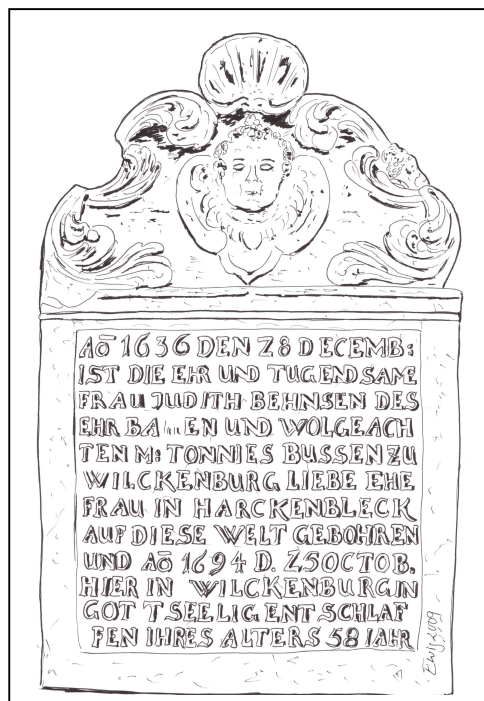 AŌ 1636 DEN Z8 DECEMB:
IST DIE EHR UND TUGENDSAME
FRAU JUDITH BEHNSEN DES
EHR UND WOLGEACH
TEN M: TONNIES BUSSEN ZU
WILCKENBURG LIEBE EHE
FRAU IN HARCKENBLECK
AUF DIESE WELT GEBOHREN
UND AŌ 1694 D. Z5 OCTOB,
HIER IN WILCKENBURG IN
GOTT SEELIG ENTSCHLAF
FEN IHRES ALTERS 58 IAHR